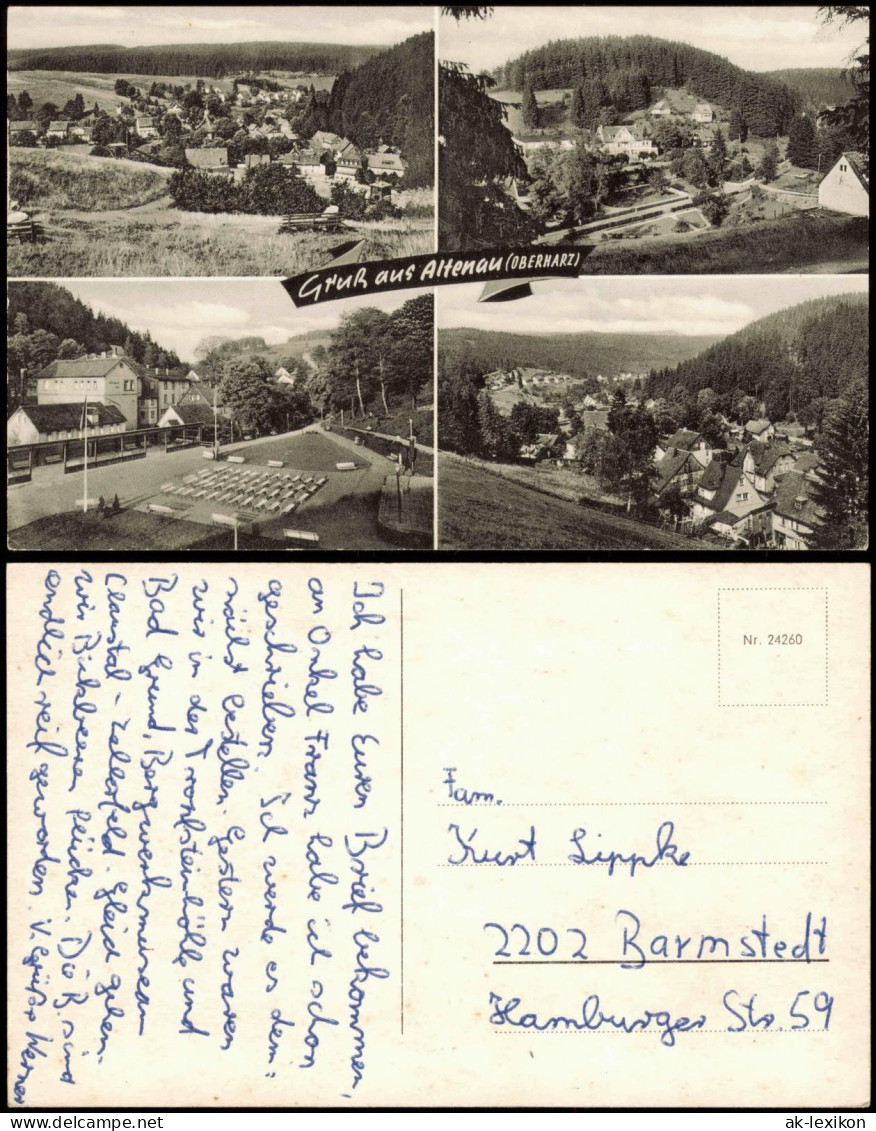 Gruß aus Altenau (OBERHARZ)
Ich habe Euren Brief bekommen,
an Onkel Franz habe ich schon
geschrieben. Ich werde es dem:
nächst bestellen. Gestern waren
wir in der Tropfsteinhölle und
Bad Grund, Bergwerksmuseum
Clausthal-Zellerfeld. Gleich gehen
wir Bickbeeren flücken. Die B. sind
endlich reif geworden. V. Grüße Werner
Nr. 24260
Fam.
Kurt Lippke
2202 Barmstedt
Hamburger Str. 59
ak-lexikon.com